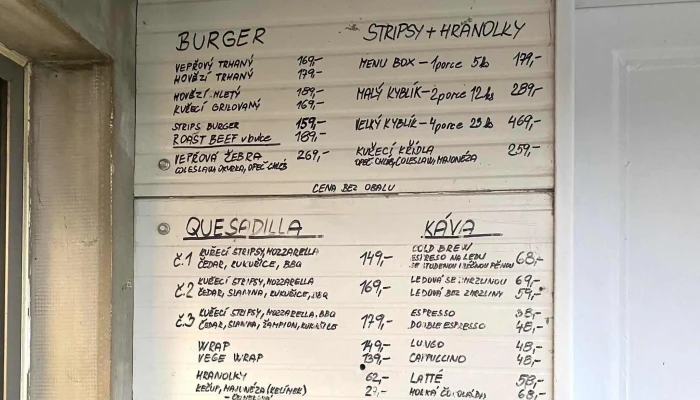 BURGER
VEPŘOVÝ TRHANÝ 169,-
HOVĚZÍ TRHANÝ 179,-
HOVĚZÍ MLETÝ 189,-
KUŘECÍ GRILOVANÝ 169,-
STRIPS BURGER 159,-
ROAST BEEF v bulce 189,-
VEPŘOVÁ ŽEBRA 269,-
COLESLAW, OKURKA, OPEČ CHLÉB
STRIPSY + HRANOLKY
MENU BOX - 1 porce 5 ks 179,-
MALÝ KYBLÍK - 2 porce 12 ks 289,-
VELKÝ KYBLÍK - 4 porce 469,-
KUŘECÍ KŘÍDLA 259,-
OPEČ CHLÉB, COLESLAW, MAJONÉZA
CENA BEZ OBALU
QUESADILLA
Č.1 KUŘECÍ STRIPSY, MOZZARELLA 149,-
ČEDAR, KUKUŘICE, BBQ
Č.2 KUŘECÍ STRIPSY, MOZZARELLA 169,-
ČEDAR, SLANINA, KUKUŘICE, BBQ
Č.3 KUŘECÍ STRIPSY, MOZZARELLA, BBQ 179,-
ČEDAR, SLANINA, ŽAMPION, KUKUŘICE
WRAP 149,-
VEGE WRAP 139,-
HRANOLKY 62,-
KEČUP, MAJONÉZA (KELÍMEK)
KÁVA
COLD BREW
ESPRESO NA LEDU 68,-
SE STUDENOU MLÉČNOU PĚNOU
LEDOVÁ SE ZMRZLINOU 69,-
LEDOVÁ BEZ ZMRZLINY 59,-
ESPRESSO 38,-
DOUBLE ESPRESSO 48,-
LUNGO 48,-
CAPPUCCINO 48,-
LATTÉ 58,-
HORKÁ ČOKOLÁDA 68,-